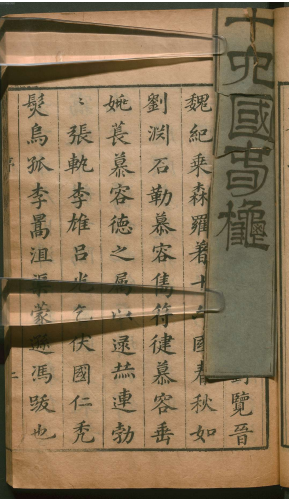 十六國旾龝
覽晉
魏紀乗森羅着十六國春秋如
劉渕石勒慕容雋符健慕容垂
姚萇慕容德之属以逮赫連勃
〻張軌李雄吕光乞伏國仁秃
髮烏孤李暠沮渠蒙遜馮跋也
序
二